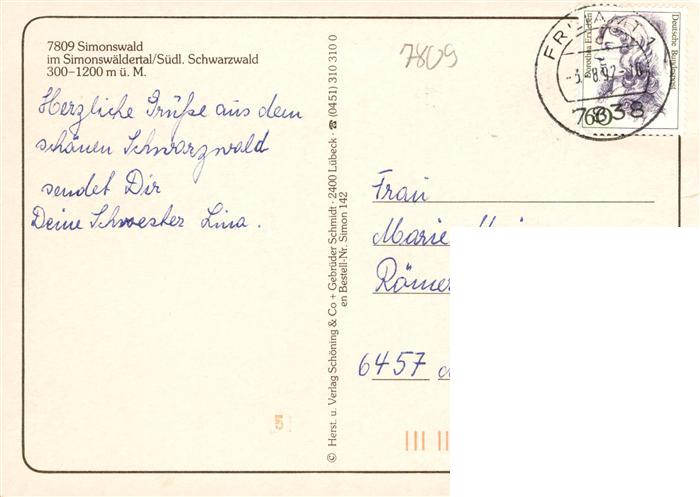 7809 Simonswald
im Simonswäldertal/Südl. Schwarzwald
300–1200 m ü. M.
Herzliche Grüße aus dem
schönen Schwarzwald
sendet Dir
Deine Schwester Lina.
© Herst. u. Verlag Schöning & Co + Gebrüder Schmidt · 2400 Lübeck · ☎ (0451) 310 310 0
en Bestell-Nr. Simon 142
7809
Deutsche Bundespost
60
-3.-8.92-
7838
Frau
Marie
Römer
6457
5